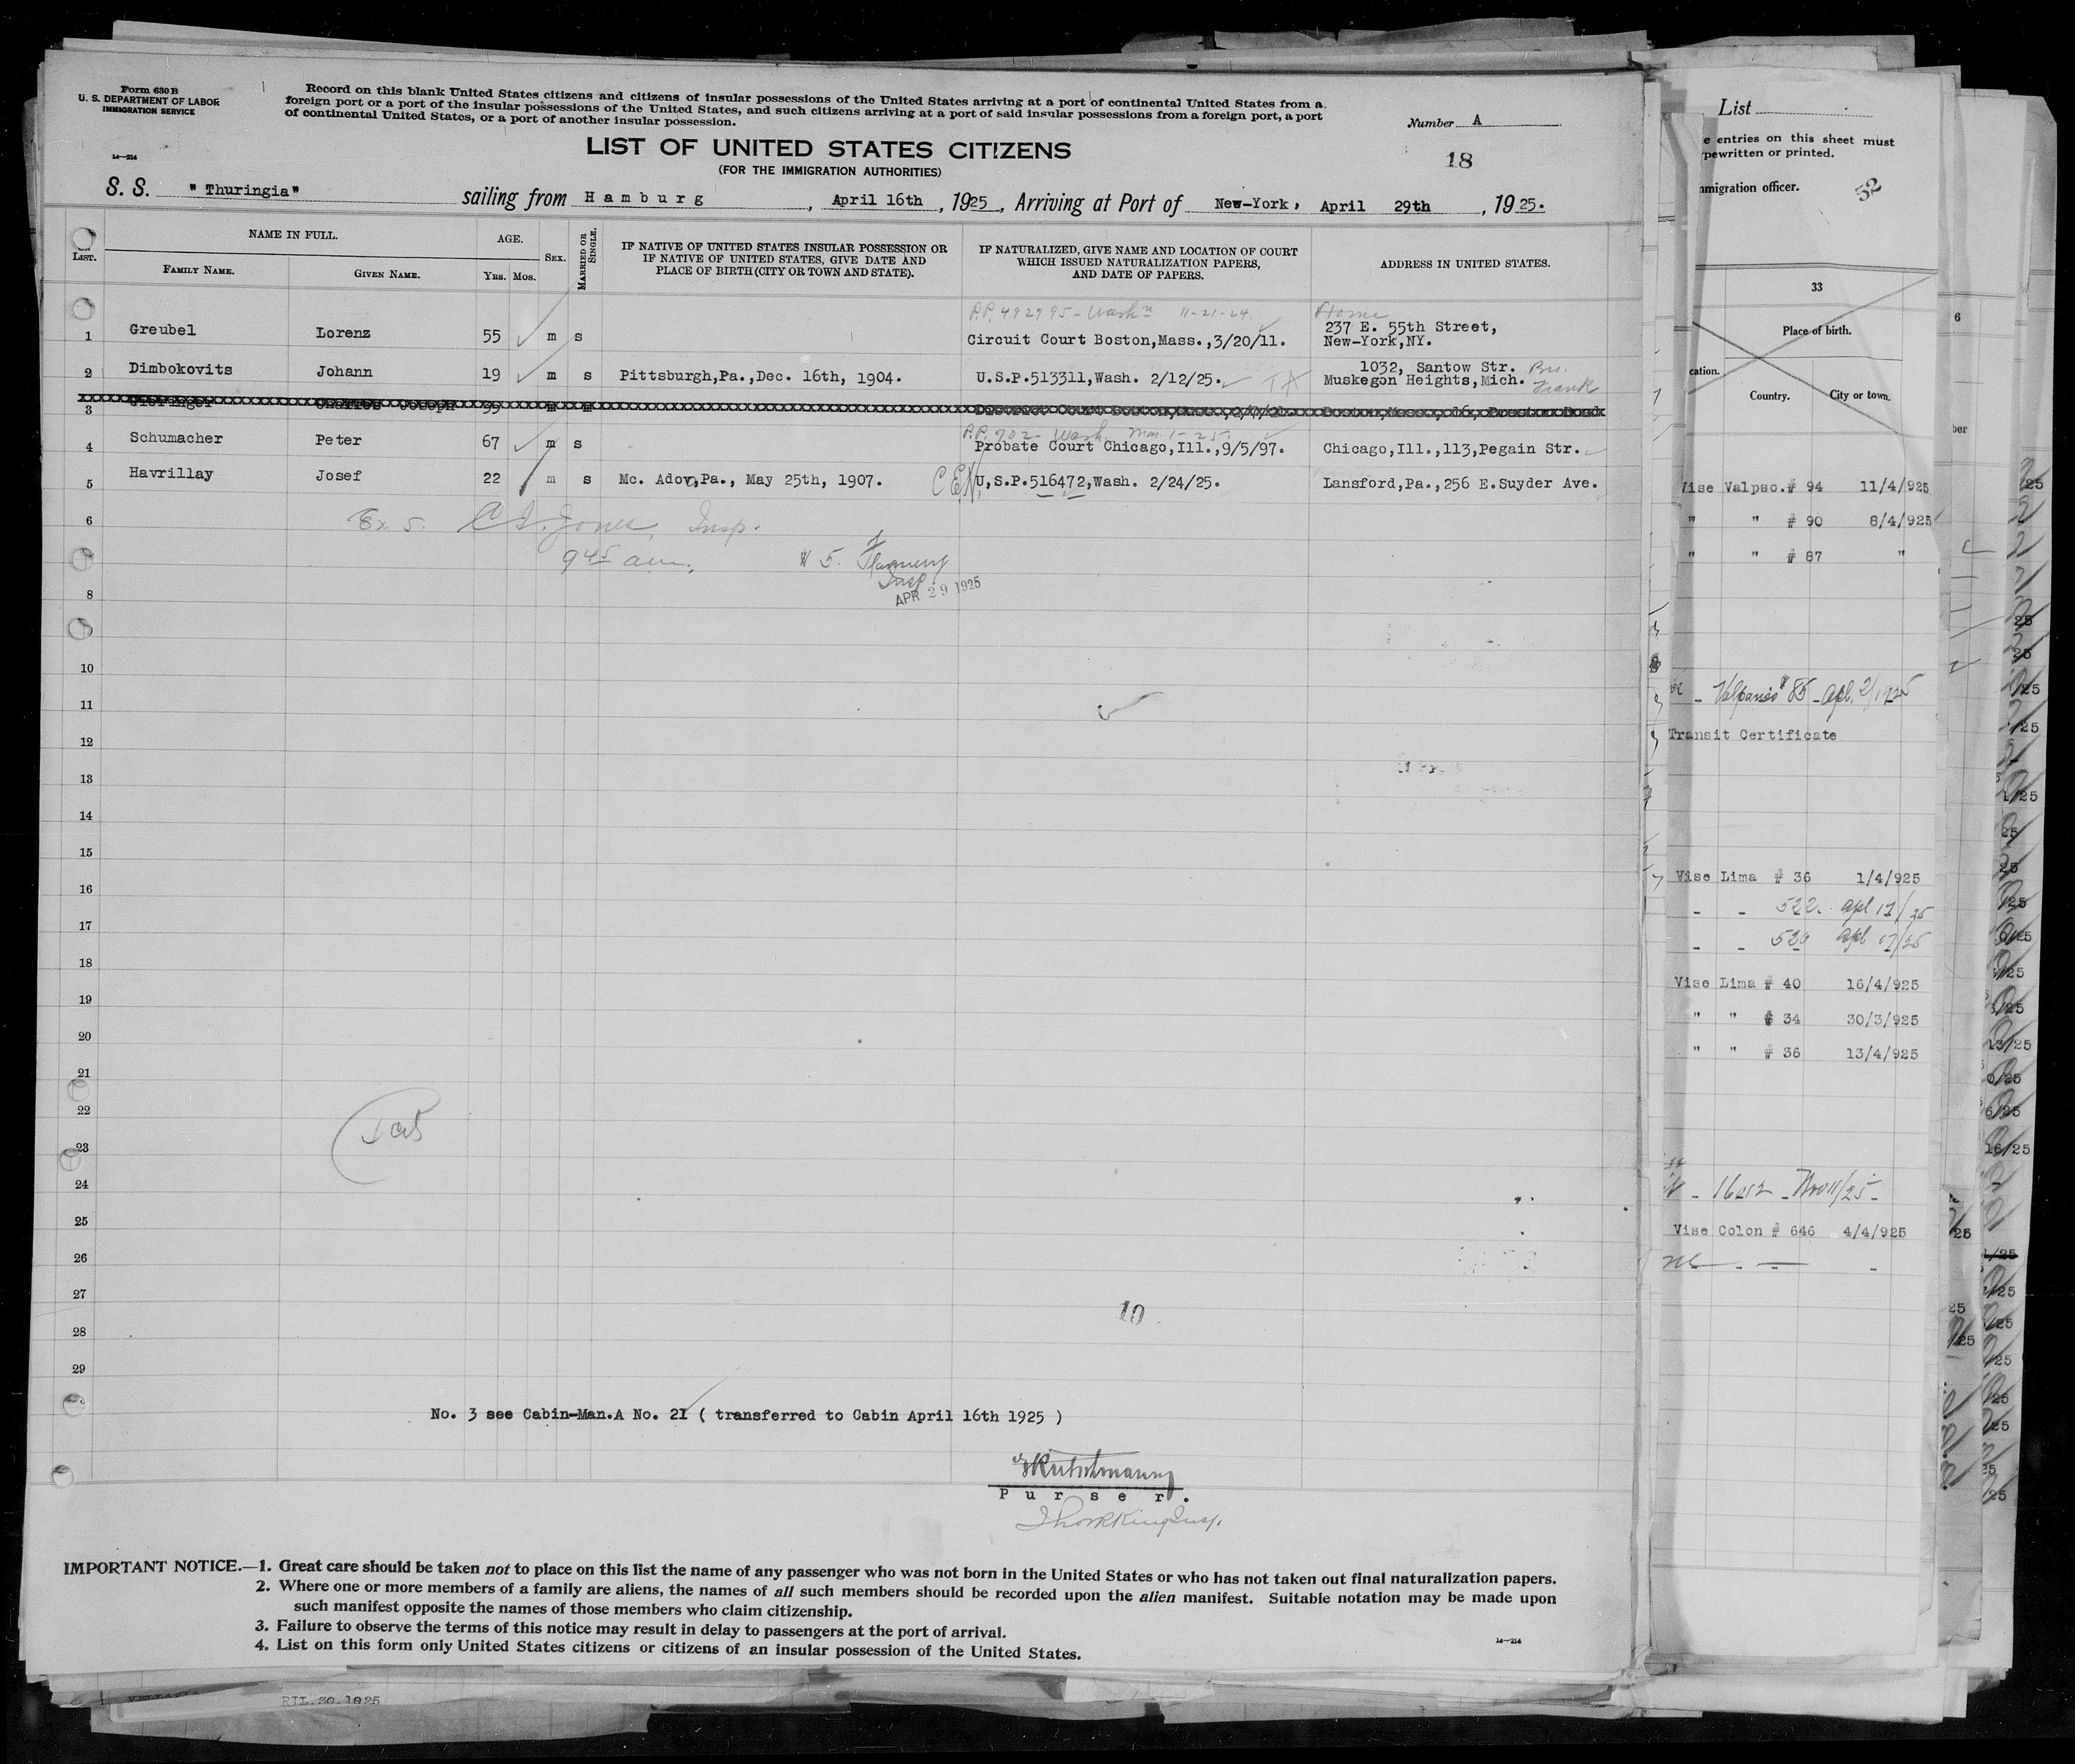 Form 630 B
U. S. DEPARTMENT OF LABOR
IMMIGRATION SERVICE
14—214
Record on this blank United States citizens and citizens of insular possessions of the United States arriving at a port of continental United States from a
foreign port or a port of the insular possessions of the United States, and such citizens arriving at a port of said insular possessions from a foreign port, a port
of continental United States, or a port of another insular possession.
Number A
LIST OF UNITED STATES CITIZENS
(FOR THE IMMIGRATION AUTHORITIES)
18
S. S. "Thuringia" sailing from Hamburg, April 16th, 1925, Arriving at Port of New-York, April 29th, 1925.
LIST.
NAME IN FULL.
FAMILY NAME.
GIVEN NAME.
AGE.
YRS. MOS.
SEX.
MARRIED OR SINGLE.
IF NATIVE OF UNITED STATES INSULAR POSSESSION OR
IF NATIVE OF UNITED STATES, GIVE DATE AND
PLACE OF BIRTH (CITY OR TOWN AND STATE).
IF NATURALIZED, GIVE NAME AND LOCATION OF COURT
WHICH ISSUED NATURALIZATION PAPERS,
AND DATE OF PAPERS.
ADDRESS IN UNITED STATES.
P.P. 492795 - Washn 11-21-24.
Home
1 Greubel Lorenz 55 m s Circuit Court Boston,Mass.,3/20/11. 237 E. 55th Street,
New-York,NY.
2 Dimbokovits Johann 19 m s Pittsburgh,Pa.,Dec. 16th, 1904. U.S.P.513311,Wash. 2/12/25. 1032, Santow Str. Bro.
Muskegon Heights,Mich. Frank
3 Charles Joseph m m District Court Boston,Mass. Boston,Mass.,16, Preston Road
P.P. 702 - Wash. Mar. 1-25.
4 Schumacher Peter 67 m s Probate Court Chicago,Ill.,9/5/97. Chicago,Ill.,113,Pegain Str.
5 Havrillay Josef 22 m s Mc. Adov,Pa., May 25th, 1907. U,S.P.516472,Wash. 2/24/25. Lansford,Pa.,256 E.Suyder Ave.
6
Ex 5. Jones, Insp.
9 45 am.
# 5. Flannery
Insp.
APR 29 1925
8
10
11
12
13
14
15
16
17
18
19
20
21
22
23
24
25
26
27
10
28
29
No. 3 see Cabin-Man.A No. 21 ( transferred to Cabin April 16th 1925 )
Purser.
IMPORTANT NOTICE.—1. Great care should be taken not to place on this list the name of any passenger who was not born in the United States or who has not taken out final naturalization papers.
2. Where one or more members of a family are aliens, the names of all such members should be recorded upon the alien manifest. Suitable notation may be made upon
such manifest opposite the names of those members who claim citizenship.
3. Failure to observe the terms of this notice may result in delay to passengers at the port of arrival.
4. List on this form only United States citizens or citizens of an insular possession of the United States.
14—214
List
e entries on this sheet must
pewritten or printed.
mmigration officer.
52
33
Place of birth.
cation.
Country.
City or town.
6
ber
Vise Valpso.# 94 11/4/925
" " # 90 8/4/925
" " # 87 "
Valparaiso # 85 - Apl. 2/1925
Transit Certificate
Vise Lima # 36 1/4/925
- - 522. apl 17/25
- - 530 apl 17/25
Vise Lima # 40 16/4/925
" " # 34 30/3/925
" " # 36 13/4/925
Vise Colon # 646 4/4/925
RIL.30.1925